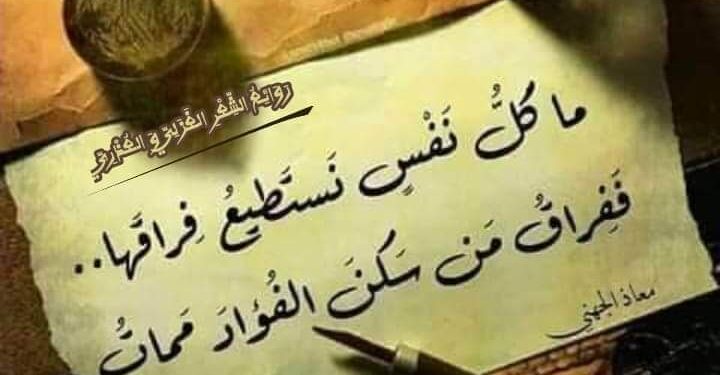 روائع الشعر العربي العذري
ما كلُّ نَفْسٍ نَستَطيعُ فِراقَها..
فَفِراقُ مَن سَكنَ الفُؤادَ مَماتُ
معاذ الجهني